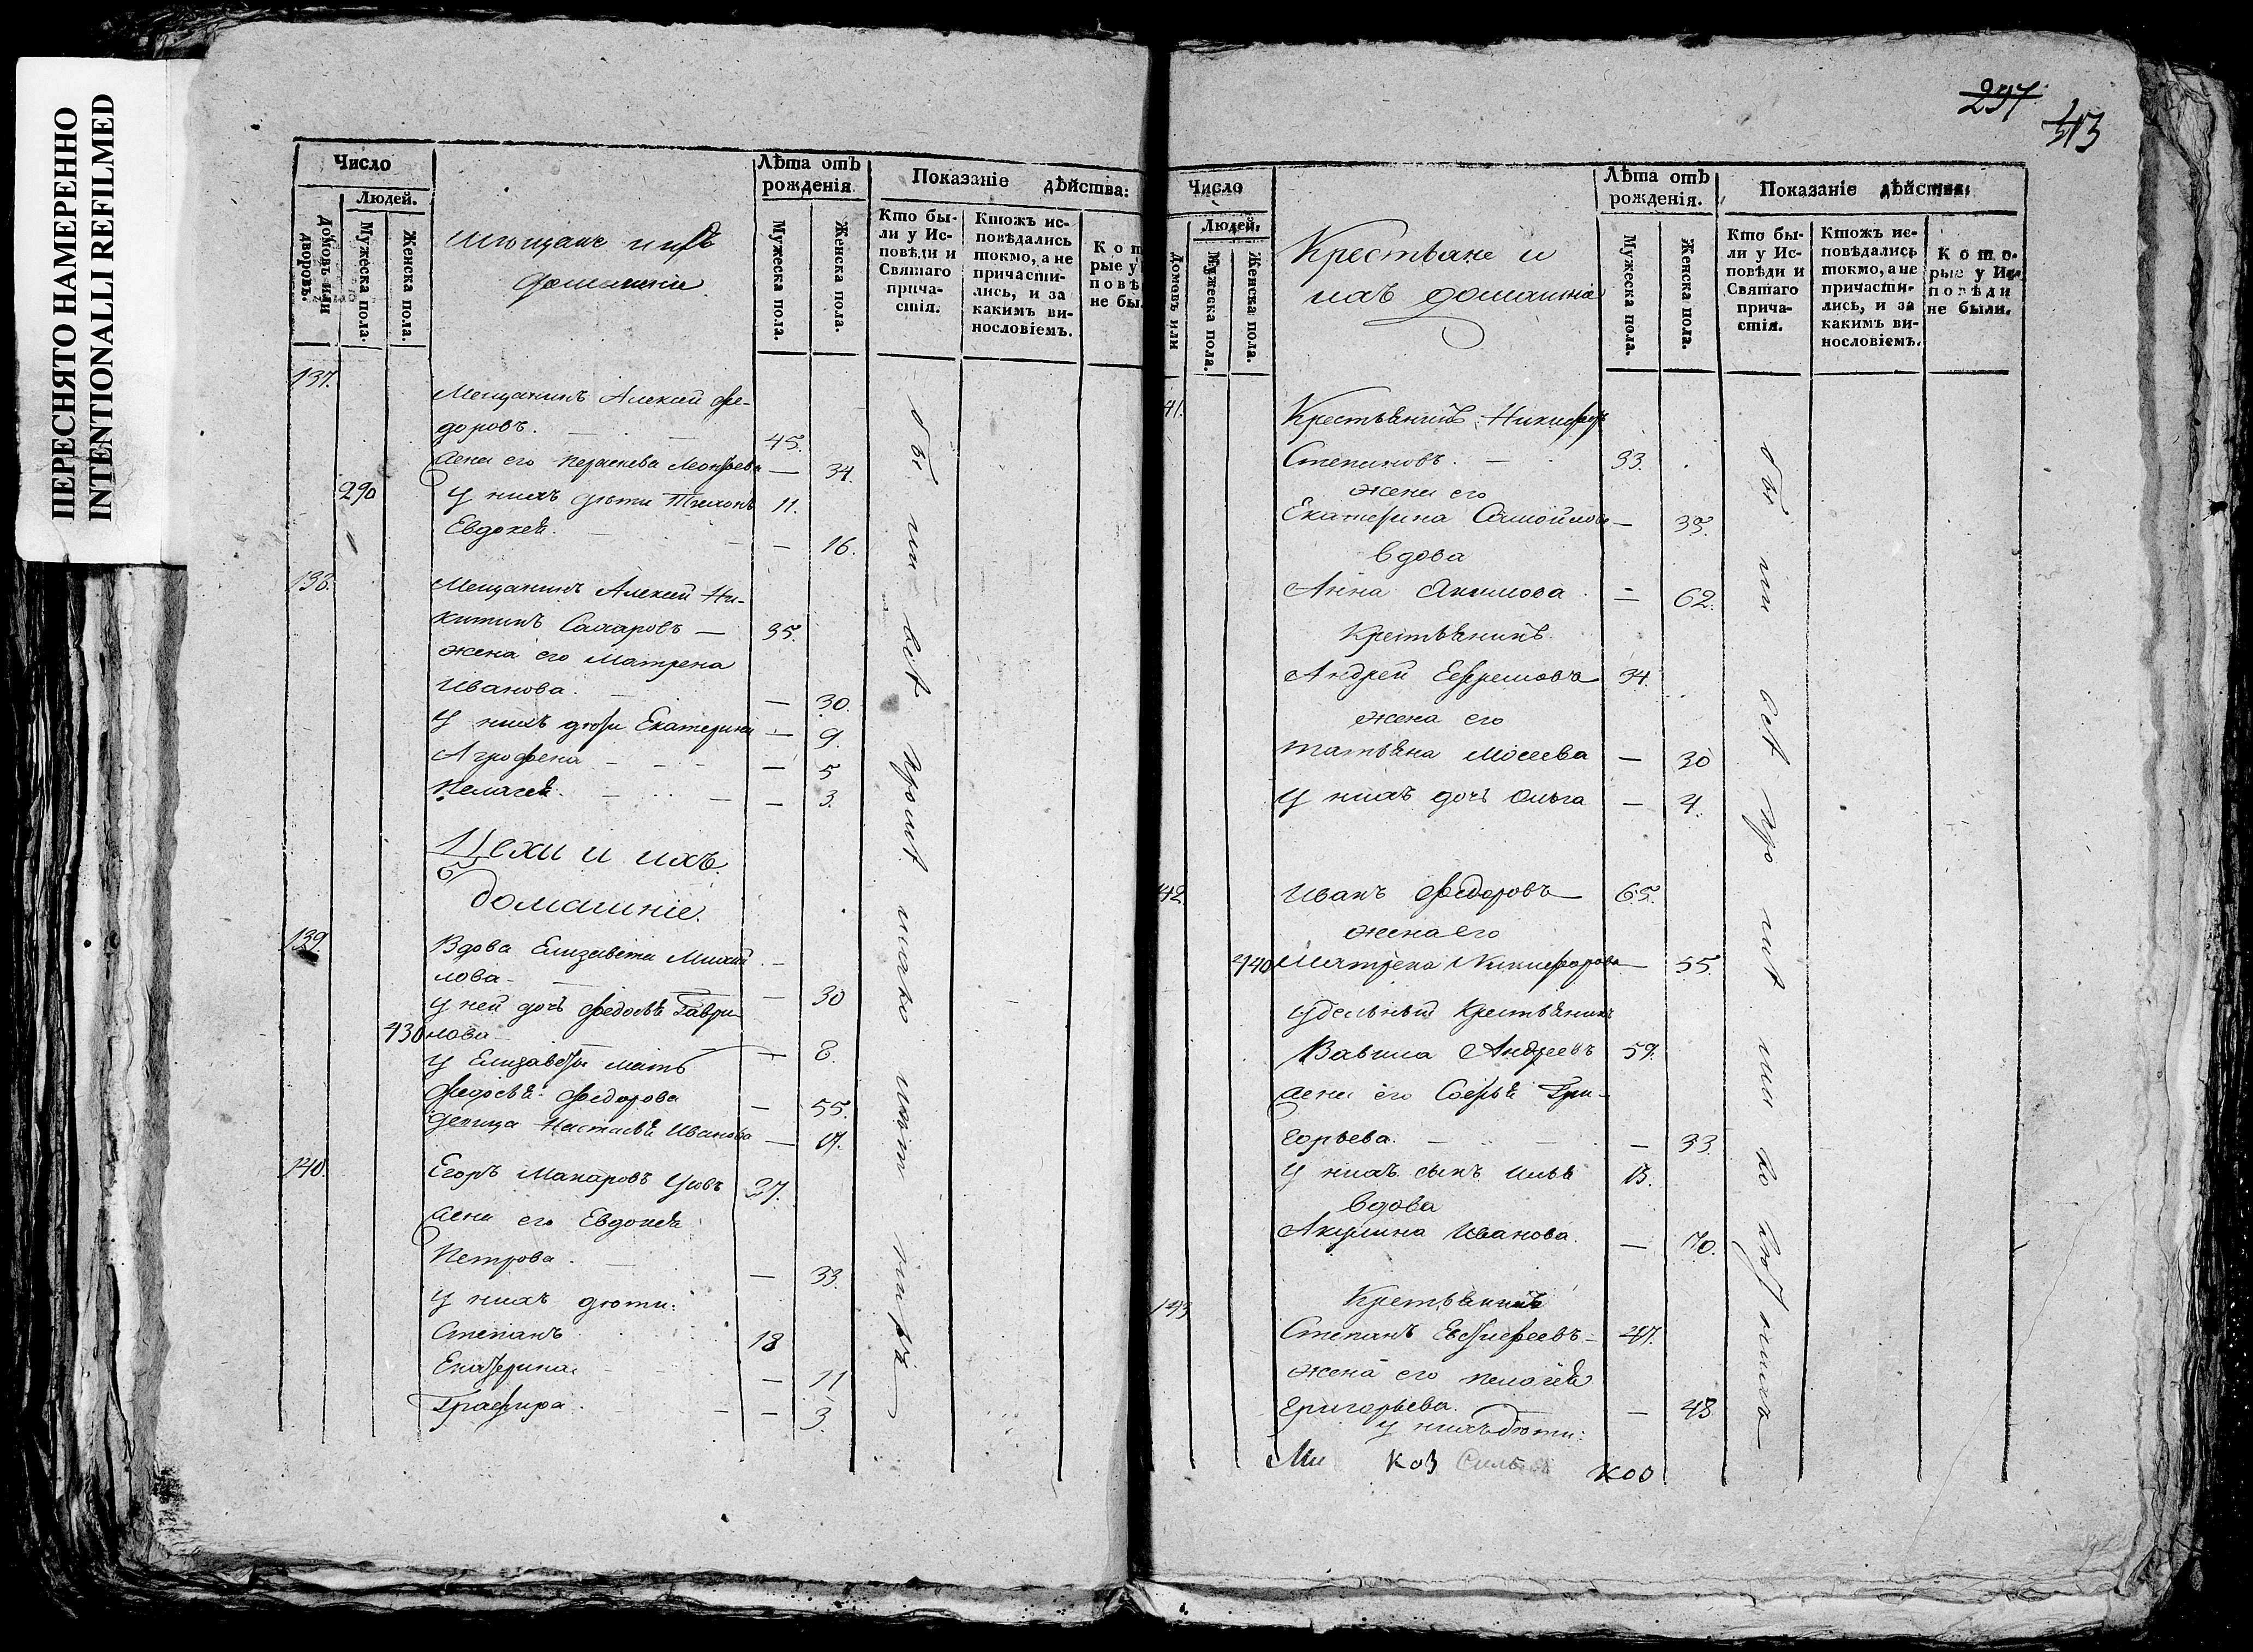 ПЕРЕСНЯТО НАМЕРЕННО
INTENTIONALLI REFILMED
Число
Людей.
Домовъ или дворовъ.
Мужеска пола.
Женска пола.
Мѣщане и ихъ
домашніе.
Лѣта отъ рожденія
Мужеска пола.
Женска пола.
Показаніе дѣйства:
Кто бы-
ли у Ис-
повѣди и
Святаго
прича-
стія.
Ктожъ ис-
повѣдались
токмо, а не
причасти-
лись, и за
какимъ ви-
нословіемъ.
Кот
рые у
повѣ
не бы
137.
Мещанинъ Алексей Фе-
доровъ. 45.
жена его Парасковья Леонтьева — 34.
290 У нихъ дѣти Тихонъ 11.
Евдокея. — 16.
138.
Мещанинъ Алексей Ни-
китинъ Сахаровъ — 35.
жена его Матрена
Иванова. — 30.
У нихъ дѣти Екатерина — 9.
Агрофена — 5
Пелагея. — 3.
Цехи и ихъ
домашніе.
139.
Вдова Елизавета Михай
лова — 30
у ней дочь Федосья Гаври-
430 лова — 8.
у Елизаветы мать
Федосья Федорова — 55.
девица Настасья Иванова —
140.
Егоръ Макаровъ 37.
жена его Евдокея
Петрова. — 33.
у нихъ дѣти:
Степанъ 18
Екатерина — 11
Глафира. — 3.
297
313
Число
Людей.
Домовъ или
Мужеска пола.
Женска пола.
Крестьяне и
ихъ домашніе
Лѣта отъ рожденія.
Мужеска пола.
Женска пола.
Показаніе дѣйства:
Кто бы-
ли у Ис-
повѣди и
Святаго
прича-
стія.
Ктожъ ис-
повѣдались
токмо, а не
причасти-
лись, и за
какимъ ви-
нословіемъ.
Кото-
рые у Ис-
повѣди
не были.
41.
Крестьянинъ Никифоръ
Степановъ. — 33.
жена его
Екатерина Самойлова — 35.
вдова
Анна Акимова. — 62.
Крестьянинъ
Андрей Ефремовъ 34.
жена его
Татьяна Мосеева — 30
У нихъ дочь Ольга — 4.
42.
Иванъ Федоровъ 65.
жена его
440 Матрена Никифорова — 55.
Удельный Крестьянинъ
Вавила Андреевъ 59.
жена его Софья Гри-
горьева. — 33.
У нихъ сынъ Илья 13.
вдова
Акулина Иванова. — 70.
143
Крестьянинъ
Степанъ Евстифеевъ — 47.
жена его Пелагея
Григорьева. — 48
у нихъ дѣти: